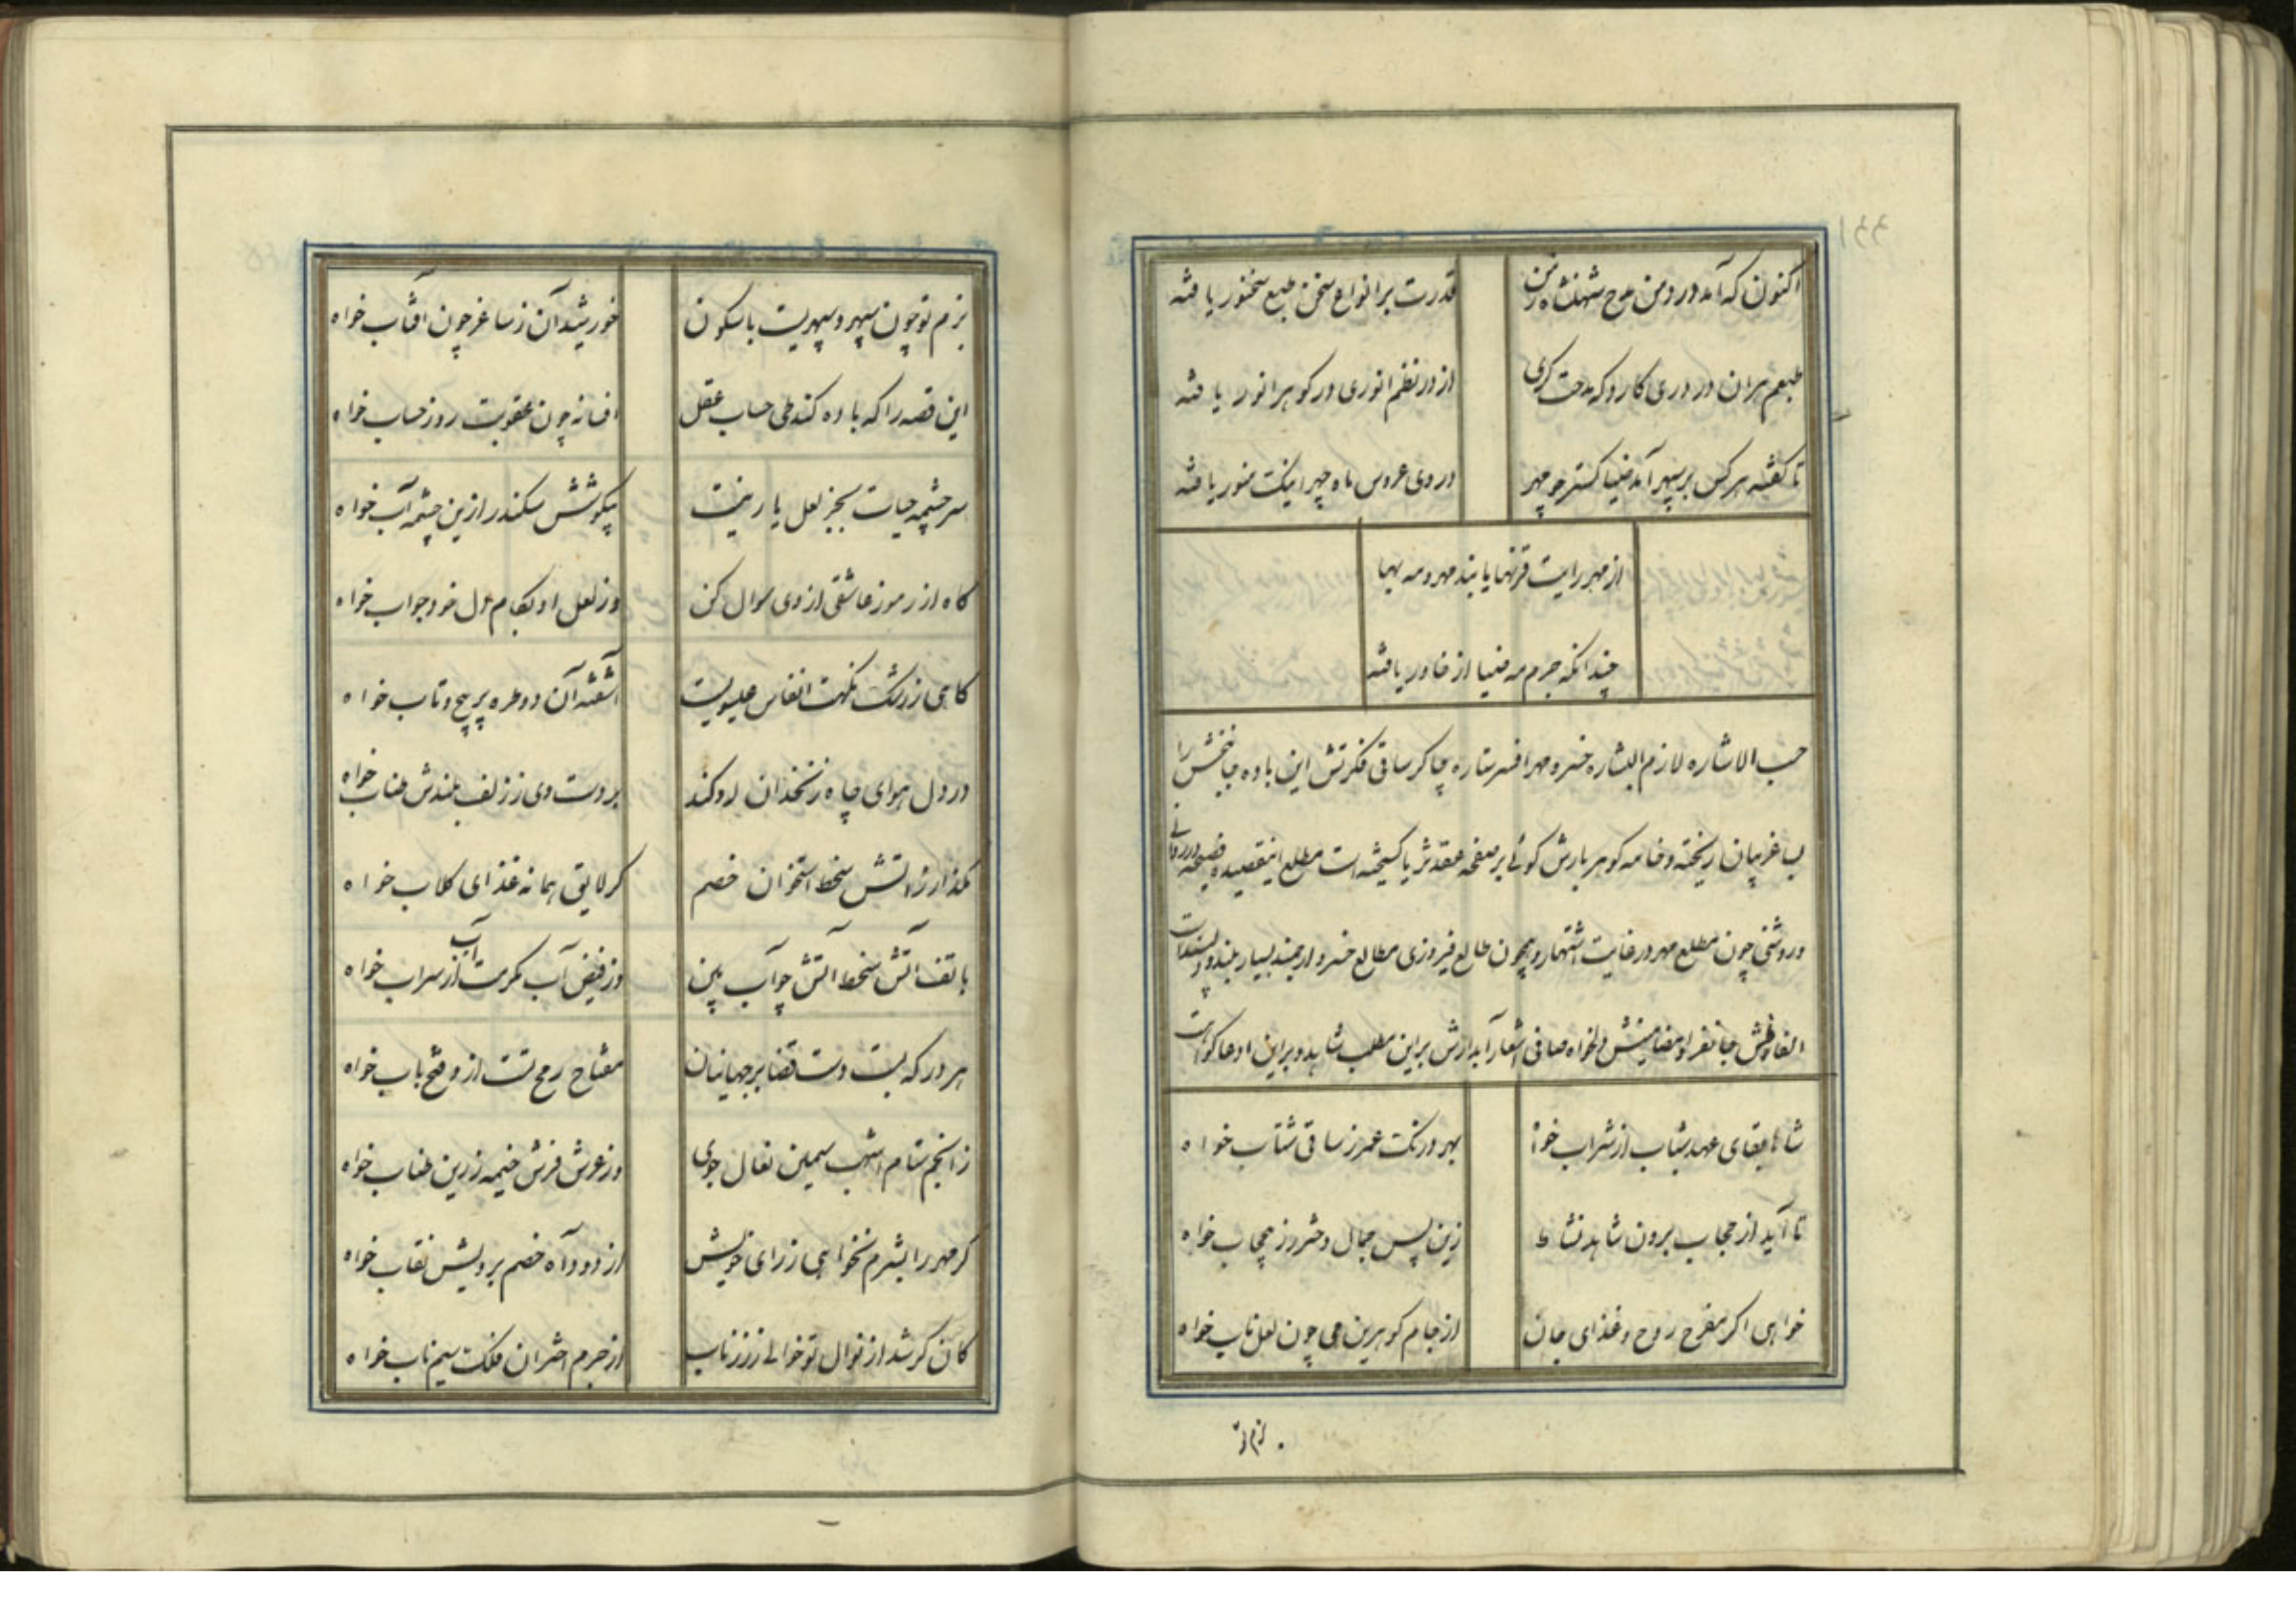 اکنون که آمد در و من مدح شهنشاه زمن
قدرت بر انواع سخن طبع سخنور یافته
طبعم بران در دری کارد که مدحت
از در نظم انوری در کوهر انور یافته
تا کفته هر کس بر سپهر آمد ضیا کستر چو مهر
در وی عروس ماه چهر اینک منور یافته
از مهر رایت قرنها یابند مهر و مه بها
چندانکه جرم مه ضیا از خاور یافته
حسب الاشاره لازم البشاره خسرو مهر افسر ستاره چاکر ساقی فکرتش این باده جانبخش را
ب غر بیان ریخته و خامه کوهر بارش کوئی بر صفحه عقد ثریا کسیخته است مطلع اینقصیده فصیحه در روانی
و روشنی چون مطلع مهر در غایت اشتهار و همچون طالع فیروزی مطالع خسرو ارجمند بسیار بلند و پسند است
الفاظش جانفزا و مضامینش دلخواه صافی اشعار آبدارش بر این مطلب شاهد و بر این ادعا کواست
شاها بقای عهد شباب از شراب خواه
بهر درنک عمر ز ساقی شتاب خواه
تا آید از حجاب برون شاهد نشاط
زین پس جمال دختر رز بیحجاب خواه
خواهی اکر مفرح روح و غذای جان
از جام کوهرین می چون لعل ناب خواه
بزم تو
بزم تو چون سپهر و سپهریست با سکون
خورشید آن ز ساغر چون آفتاب خواه
این قصه را که باده کند طی حساب عقل
افسانه چون عقوبت روز حساب خواه
سر چشمه حیات بجز لعل یار نیست
بیکوشش سکندر ازین چشمه آب خواه
کاه از رموز عاشقی از وی سوال کن
وز لعل او بکام دل خود جواب خواه
کاهی ز رشک نکهت انفاس عیسویت
آشفته آن دو طره پر پیچ و تاب خواه
در دل هوای چاه زنخدان او کند
بر دست وی ز زلف بلندش طناب خواه
بکذار ز آتش سخط استخوان خصم
کر لایق همانه غذای کلاب خواه
با تف آتش سخط آتش چو آب بین
وز فیض آب مکرمت آب از سراب خواه
هر در که بست دست قضا بر جهانیان
مفتاح رمح تست ازو فتح باب خواه
ز انجم ستام اشهب سیمین نعال جوی
وز عرش فرش خیمه زرین طناب خواه
کر مهر را بشرم نخواهی ز رای خویش
از دود آه خصم برویش نقاب خواه
کان کر شد از نوال تو خالی ز زر ناب
از جرم اختران فلک سیم ناب خواه